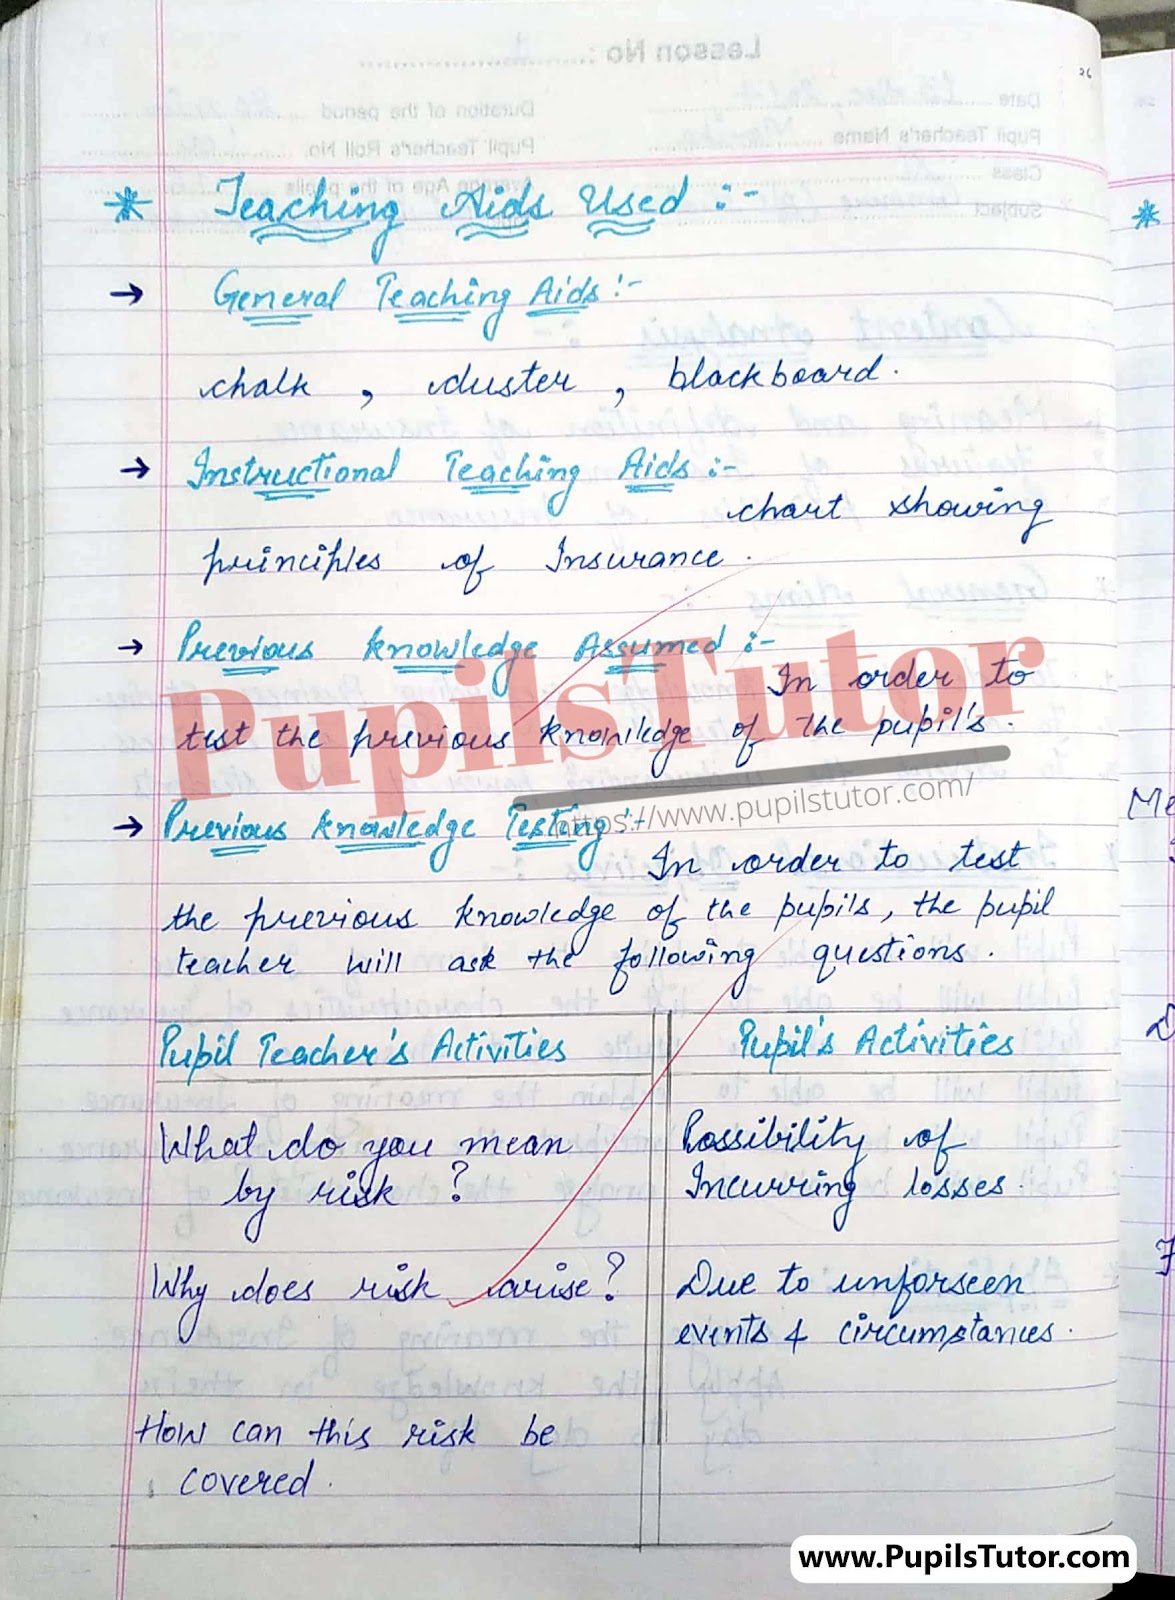 26
* Teaching Aids Used :-
→ General Teaching Aids :-
chalk , duster , blackboard .
→ Instructional Teaching Aids :-
chart showing
principles of Insurance .
→ Previous knowledge Assumed :-
In order to
test the previous knowledge of the pupil's .
PupilsTutor
https://www.pupilstutor.com/
→ Previous knowledge Testing :-
In order to test
the previous knowledge of the pupils, the pupil
teacher will ask the following questions .
Pupil Teacher's Activities
Pupil's Activities
What do you mean
by risk ?
Possibility of
Incurring losses .
Why does risk arise ?
Due to unforseen
events & circumstances .
How can this risk be
covered .
www.PupilsTutor.com